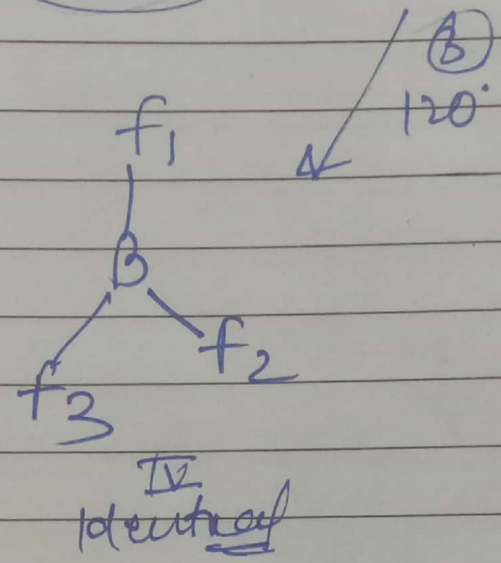 B
120°
f1
B
f3
f2
IV
Identical